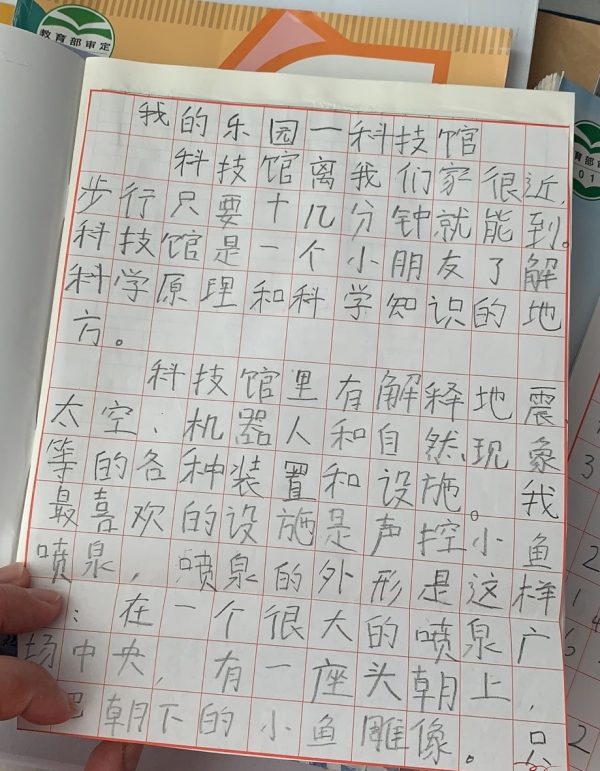 教育部审定
我的乐园一科技馆
科技馆离我们家很近,
步行只要十几分钟就能到。
科技馆是一个小朋友了解
科学原理和科学知识的地
方。
科技馆里有解释地震、
太空、机器人和自然现象
等的各种装置和设施。我
最喜欢的设施是声控小鱼
喷泉,喷泉的外形是这样
:在一个很大的喷泉广
场中央,有一座头朝上,
巴朝下的小鱼雕像。只
教育部审
01